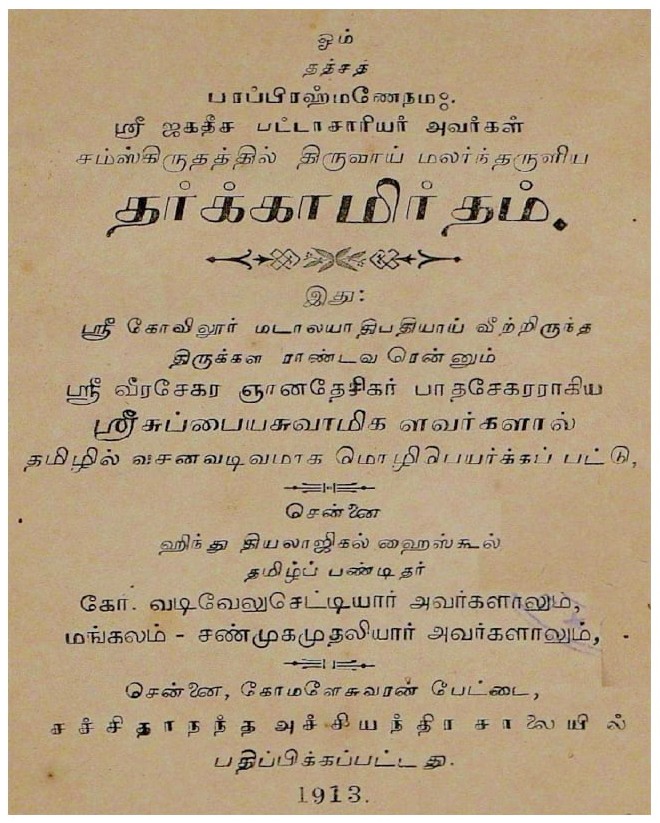 ஓம்
தத்சத்
பரப்பிரஹ்மணேநமஃ.
ஸ்ரீ ஜகதீச பட்டாசாரியர் அவர்கள்
சம்ஸ்கிருதத்தில் திருவாய் மலர்ந்தருளிய
தர்க்காமிர்தம்.
இது:
ஸ்ரீ கோவிலூர் மடாலயாதிபதியாய் வீற்றிருந்த
திருக்கள ராண்டவ ரென்னும்
ஸ்ரீ வீரசேகர ஞானதேசிகர் பாதசேகரராகிய
ஸ்ரீசுப்பையசுவாமிக ளவர்களால்
தமிழில் வசனவடிவமாக மொழிபெயர்க்கப் பட்டு,
சென்னை
ஹிந்து தியலாஜிகல் ஹைஸ்கூல்
தமிழ்ப் பண்டிதர்
கோ. வடிவேலுசெட்டியார் அவர்களாலும்,
மங்கலம் - சண்முகமுதலியார் அவர்களாலும்,
சென்னை, கோமளேசுவரன் பேட்டை,
சச்சிதாநந்த அச்சியந்திர சாலையில்
பதிப்பிக்கப்பட்டது.
1913.